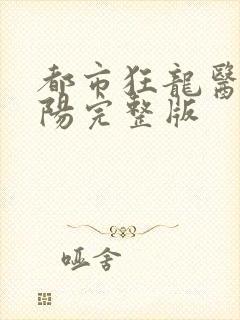 都市狂龍醫
陽完整版
哑舍